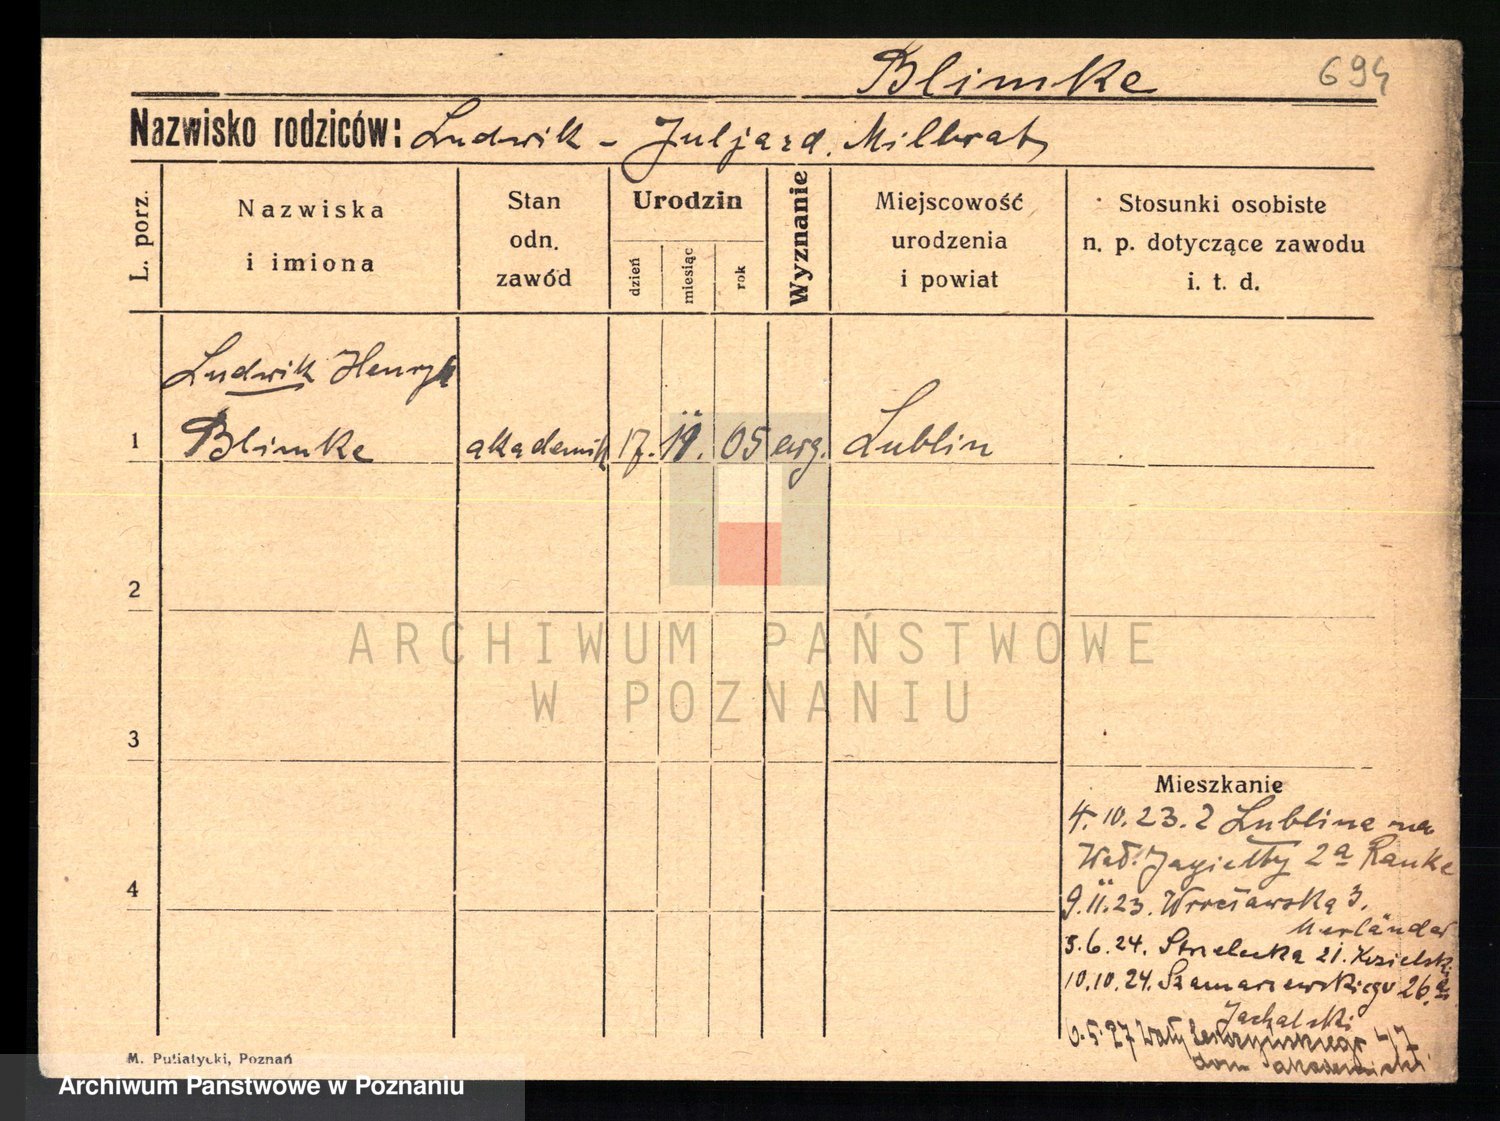 Blimke
694
Nazwisko rodziców: Ludwik - Milbrat
L. porz.
Nazwiska
i imiona
Stan
odn.
zawód
Urodzin
dzień
miesiąc
rok
Wyznanie
Miejscowość
urodzenia
i powiat
Stosunki osobiste
n. p. dotyczące zawodu
i. t. d.
Ludwik Henryk
1 Blimke akademik 17. 05 ewg. Lublin
2
3
4
Mieszkanie
4.10.23. z Lublina na
Wał. Jagiełły 2a Ranke
9.II.23. Wrocławska 3.
3.6.24. Strzelecka 21. Kozielski
10.10.24. Szamarzewskiego 26a
Jachalski
6.5.27 Wały Leszczyńskiego
dom akademicki
M. Putiatycki, Poznań
ARCHIWUM PAŃSTWOWE
W POZNANIU
Archiwum Państwowe w Poznaniu